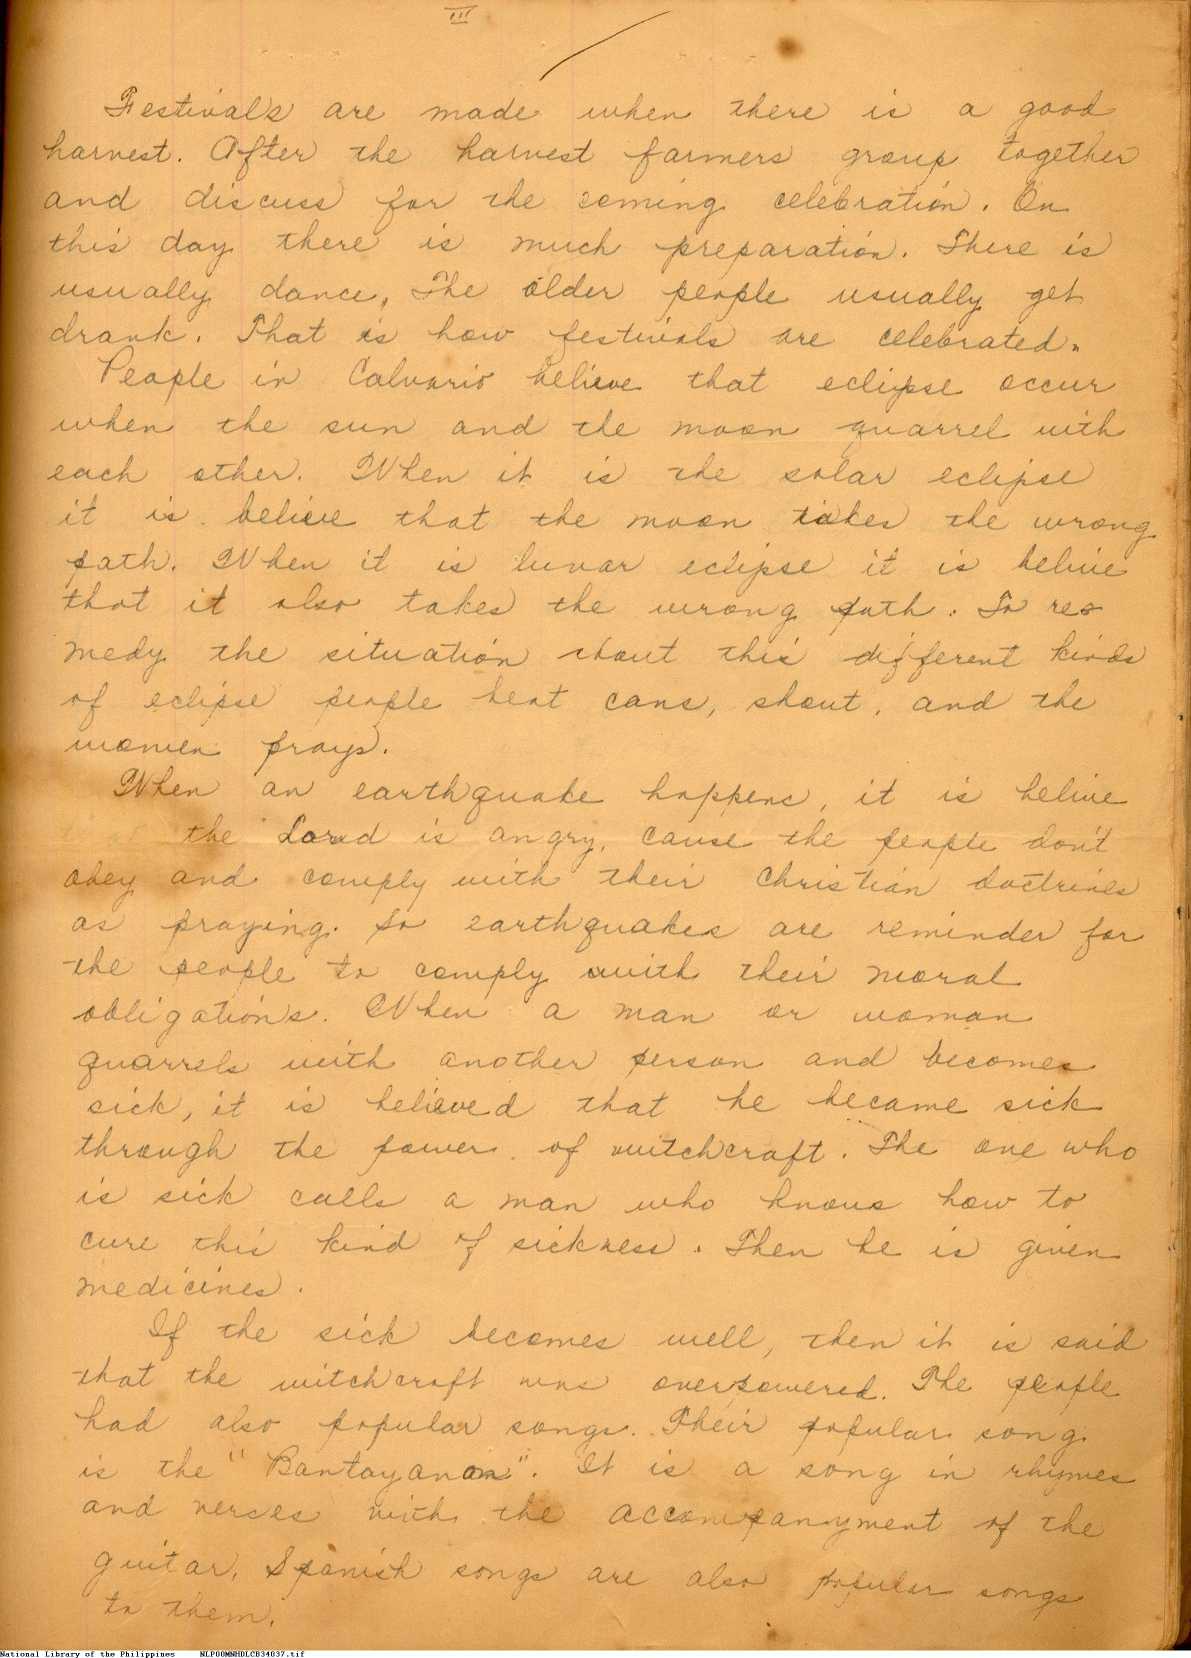 III
Festivals are made when there is a good
harvest. After the harvest farmers group together
and discuss for the coming celebration. On
this day there is much preparation. There is
usually dance, The older people usually get
drank. That is how festivals are celebrated.
People in Calvario believe that eclipse occur
when the sun and the moon quarrel with
each other. When it is the solar eclipse
it is believe that the moon takes the wrong
path. When it is lunar eclipse it is belive
that it also takes the wrong path. To re-
medy the situation about this different kinds
of eclipse people beat cans, shout, and the
women prays.
When an earthquake happens, it is belive
the Lord is angry, cause the people don't
obey and comply with their Christian doctrines
as praying. So earthquakes are reminder for
the people to comply with their moral
obligations. When a man or woman
quarrels with another person and becomes
sick, it is believed that he became sick
through the power of witchcraft. The one who
is sick calls a man who knows how to
cure this kind of sickness. Then he is given
medicines.
If the sick becomes well, then it is said
that the witchcraft was overpowered. The people
had also popular songs. Their popular song
is the "Bantayanon". It is a song in rhymes
and verses with the accompanyment of the
guitar. Spanish songs are also popular songs
to them.
National Library of the Philippines NLP00MNHDLCB34037.tif